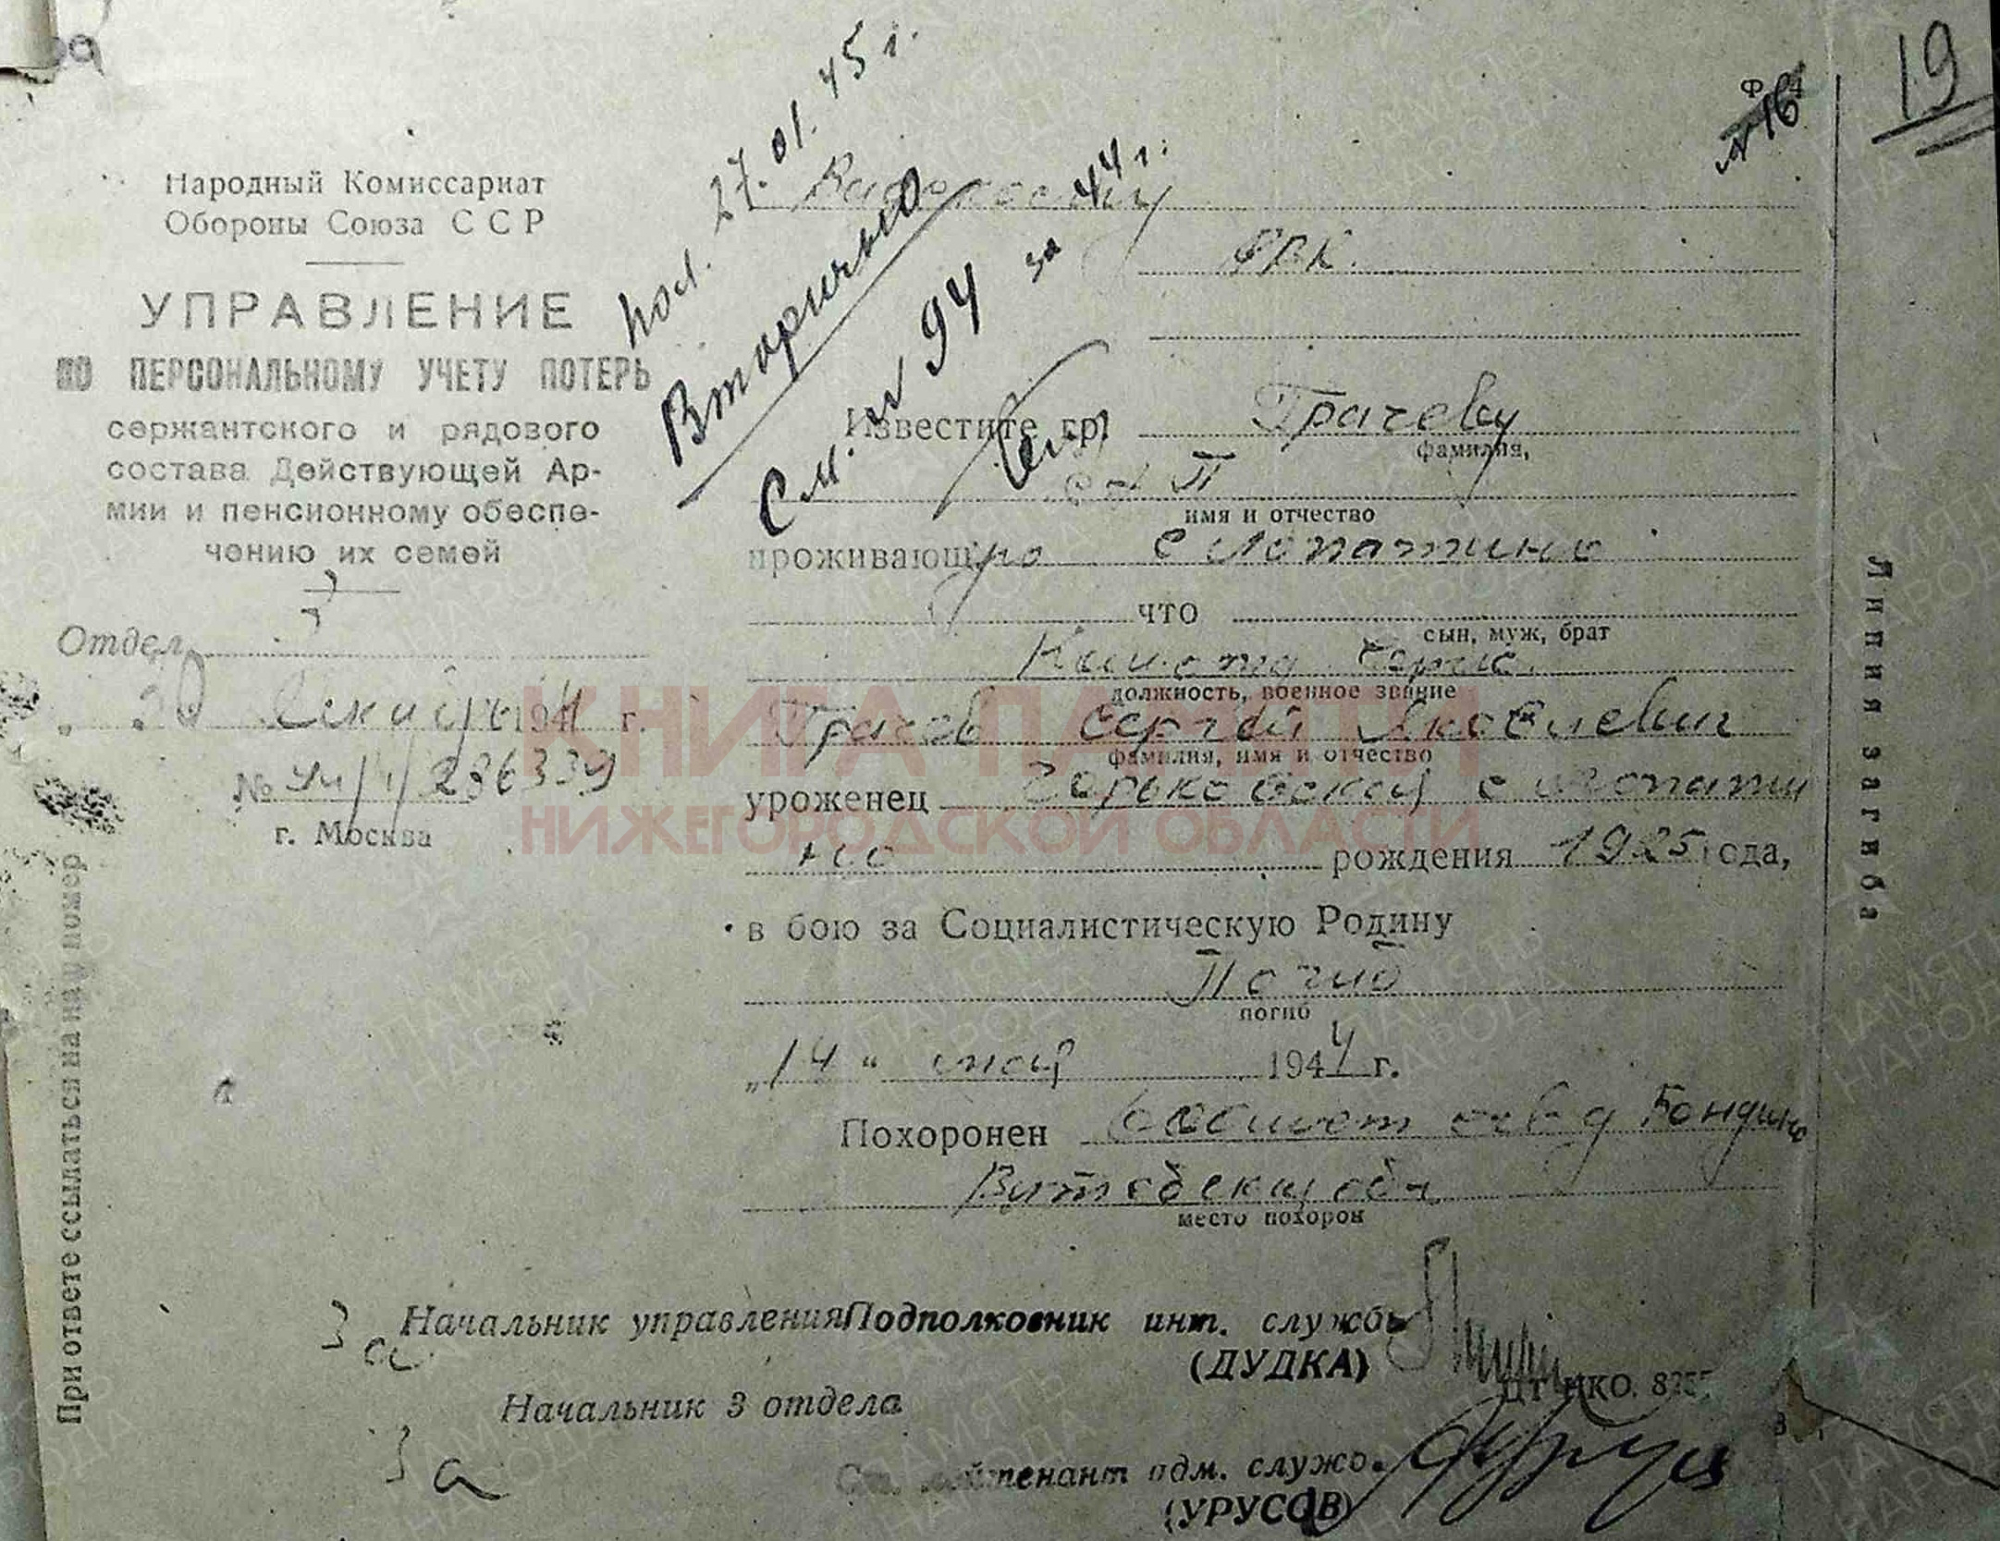 19
Ф. 4
№ 16
пол. 27.01.45 г.
Вторично
См. № 94 за 44 г.
Народный Комиссариат
Обороны Союза ССР
УПРАВЛЕНИЕ
ПО ПЕРСОНАЛЬНОМУ УЧЕТУ ПОТЕРЬ
сержантского и рядового
состава Действующей Ар-
мии и пенсионному обеспе-
чению их семей
Отдел 3
30 1944 г.
№ 286339
г. Москва
При ответе ссылаться на наш номер
РВК.
Известите гр. Грачеву
фамилия,
имя и отчество
проживающую с Лопатино
что
сын, муж, брат
должность, военное звание
Грачев Сергей Яковлевич
фамилия, имя и отчество
уроженец Горьковской с Лопати
но рождения 1925 года,
в бою за Социалистическую Родину
Погиб
погиб
„14“ мая 1944 г.
Похоронен д Бондино
Витебской обл
место похорон
Начальник управления Подполковник инт. службы
(ДУДКА)
За
Начальник 3 отдела
За
Ст. лейтенант адм. служб.
(УРУСОВ)
Линия загиба
КНИГА ПАМЯТИ
НИЖЕГОРОДСКОЙ ОБЛАСТИ
ПАМЯТЬ НАРОДА